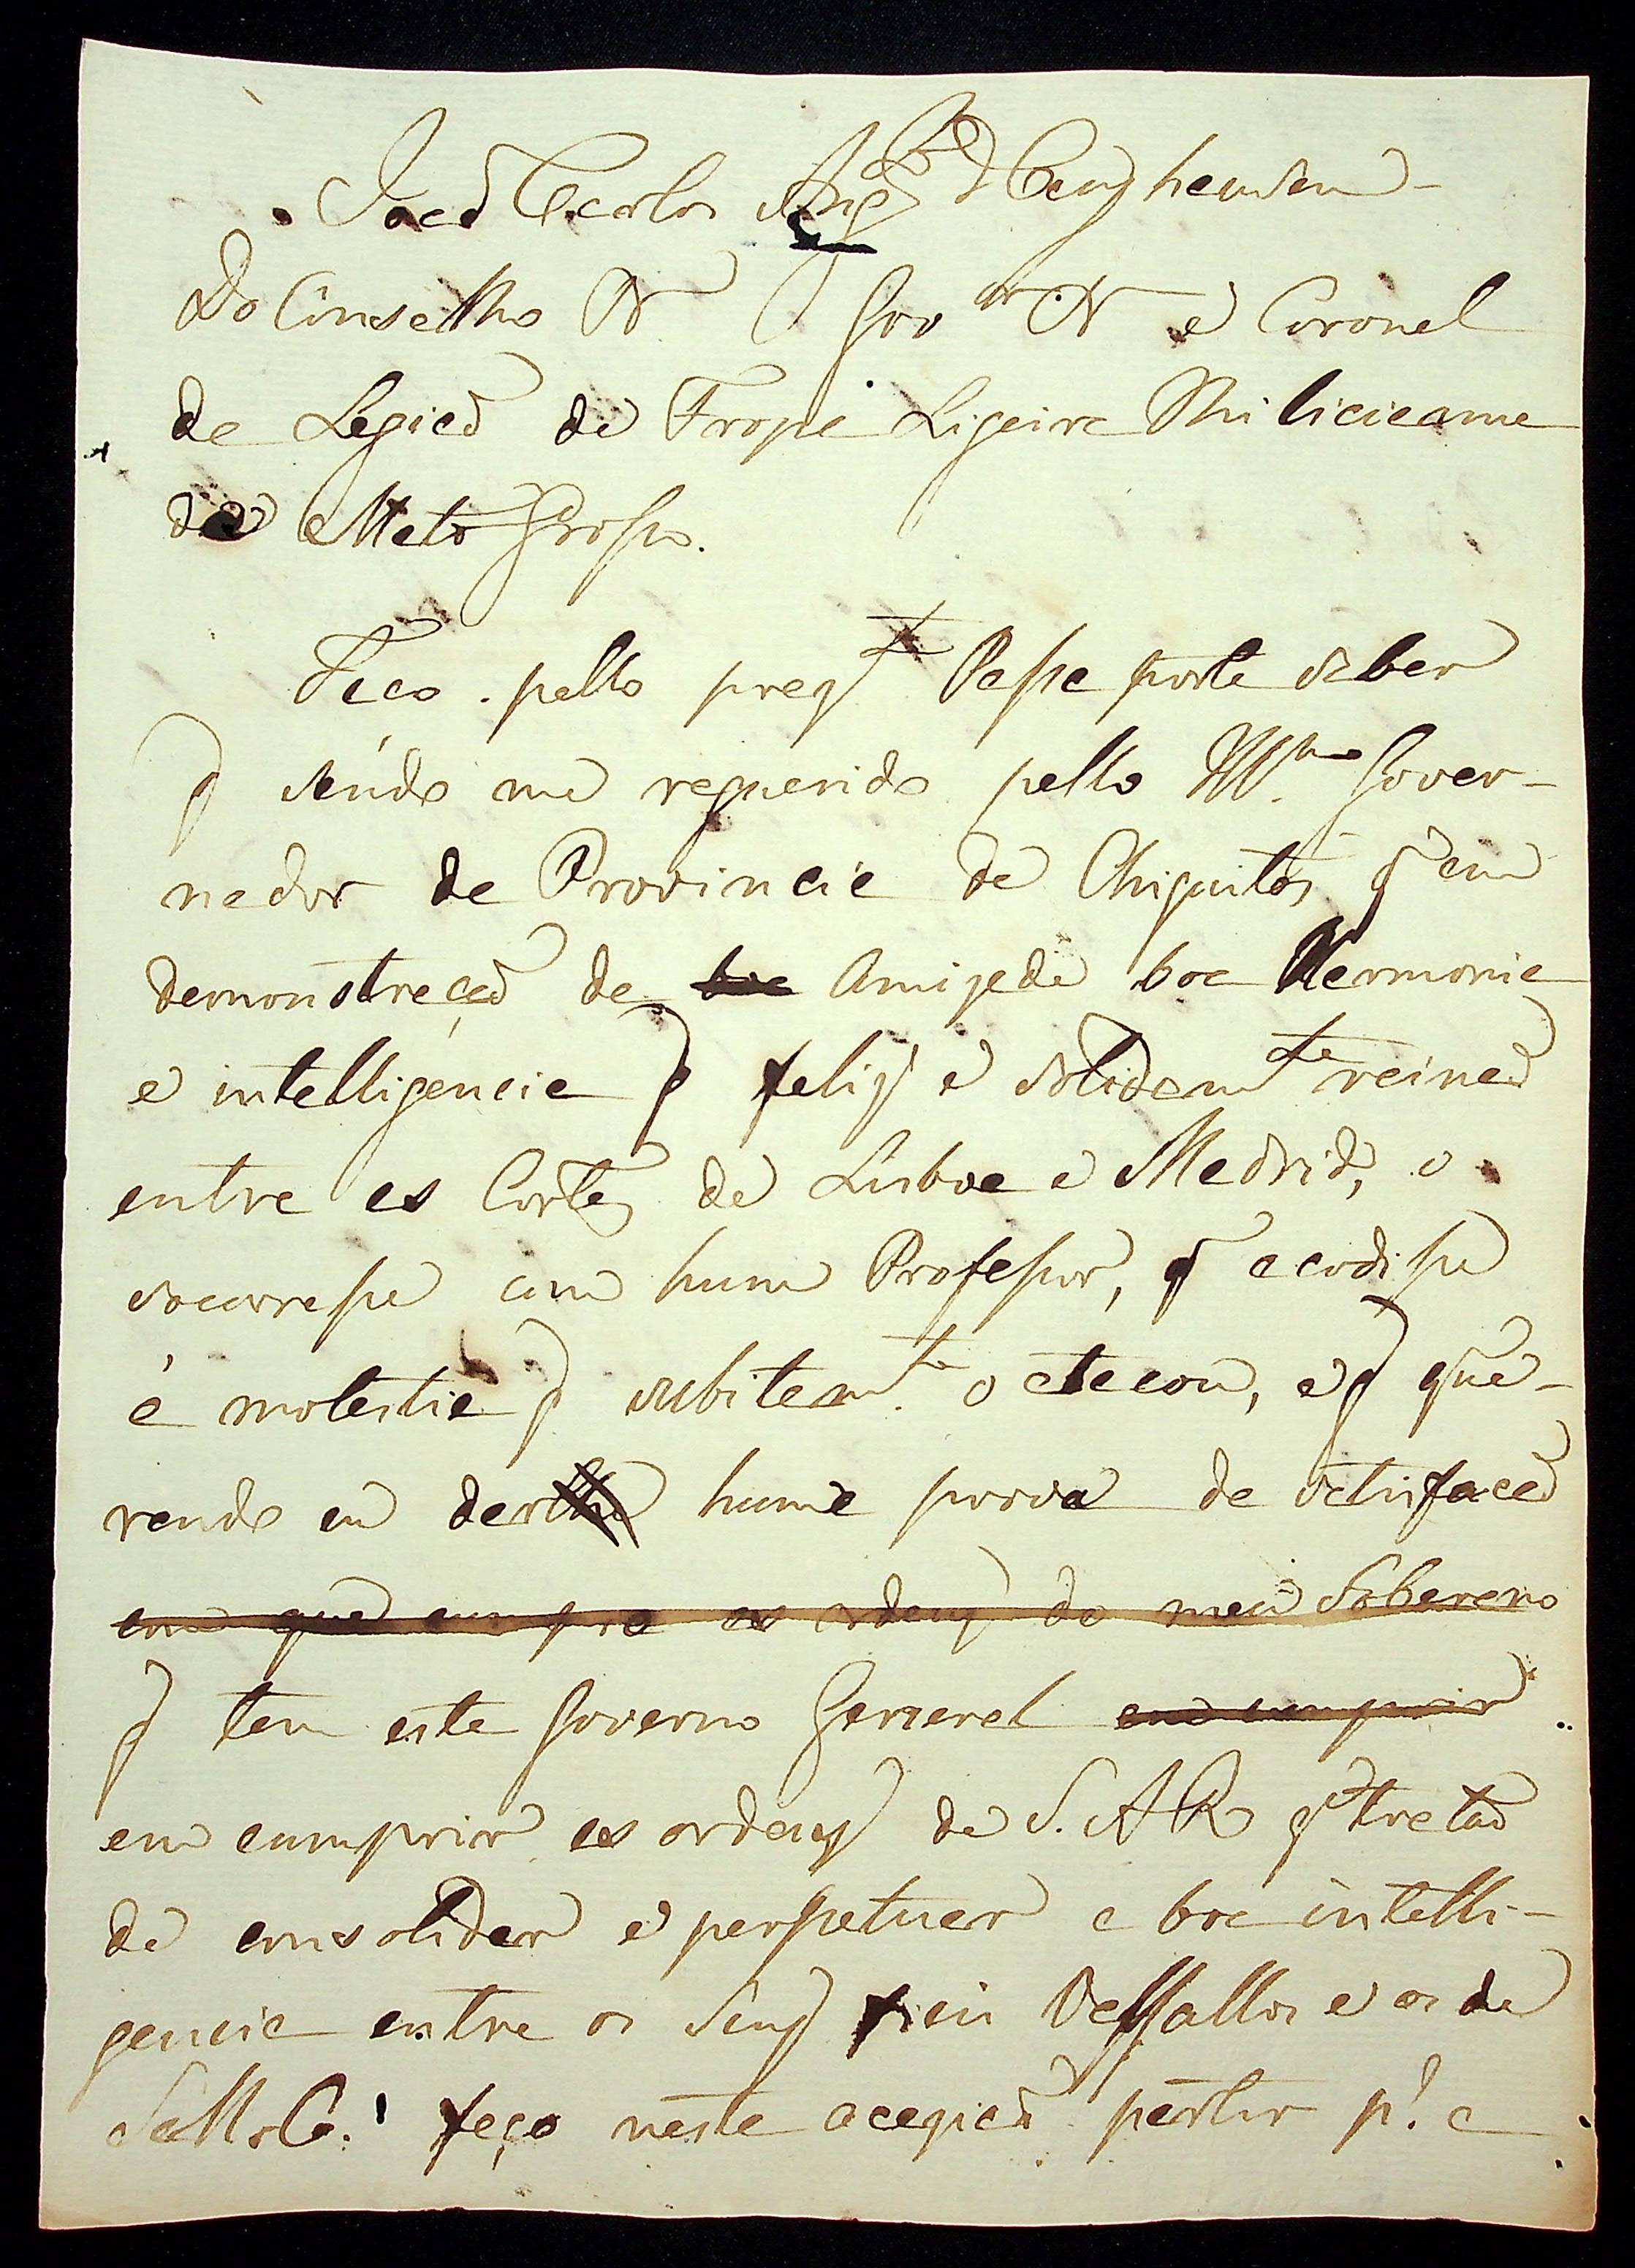 João Carlos Aug.to d'Oeynhausen -
Do Conselho & Gov.or & e Coronel
da Legião de Tropa Ligeira Miliciana
de Mato Grosso.
Faço pello prez.te Passaporte saber
q sendo me requerido pello Ill.mo Gover-
nador da Provincia de Chiquitos q em
demonstração da boa Amizade boa Harmonia
e intelligencia q feliz e solidam.te reinaõ
entre as Cortes de Lisboa e Madrid, o
socorresse com hum Professor, q acodisse
á molestia q subitam.te o atacou, e q que-
rendo eu darlhe huma prova da satisfacaõ
com que cumpro as ordens do meu Soberano
q tem este Governo General em cumprir
em cumprir as ordens de S. A R q trataõ
de consolidar e perpetuar a boa intelli-
gencia entre os Seus fieis Vassallos e os de
S. M. C. faço nesta ocaziaõ partir p.a a